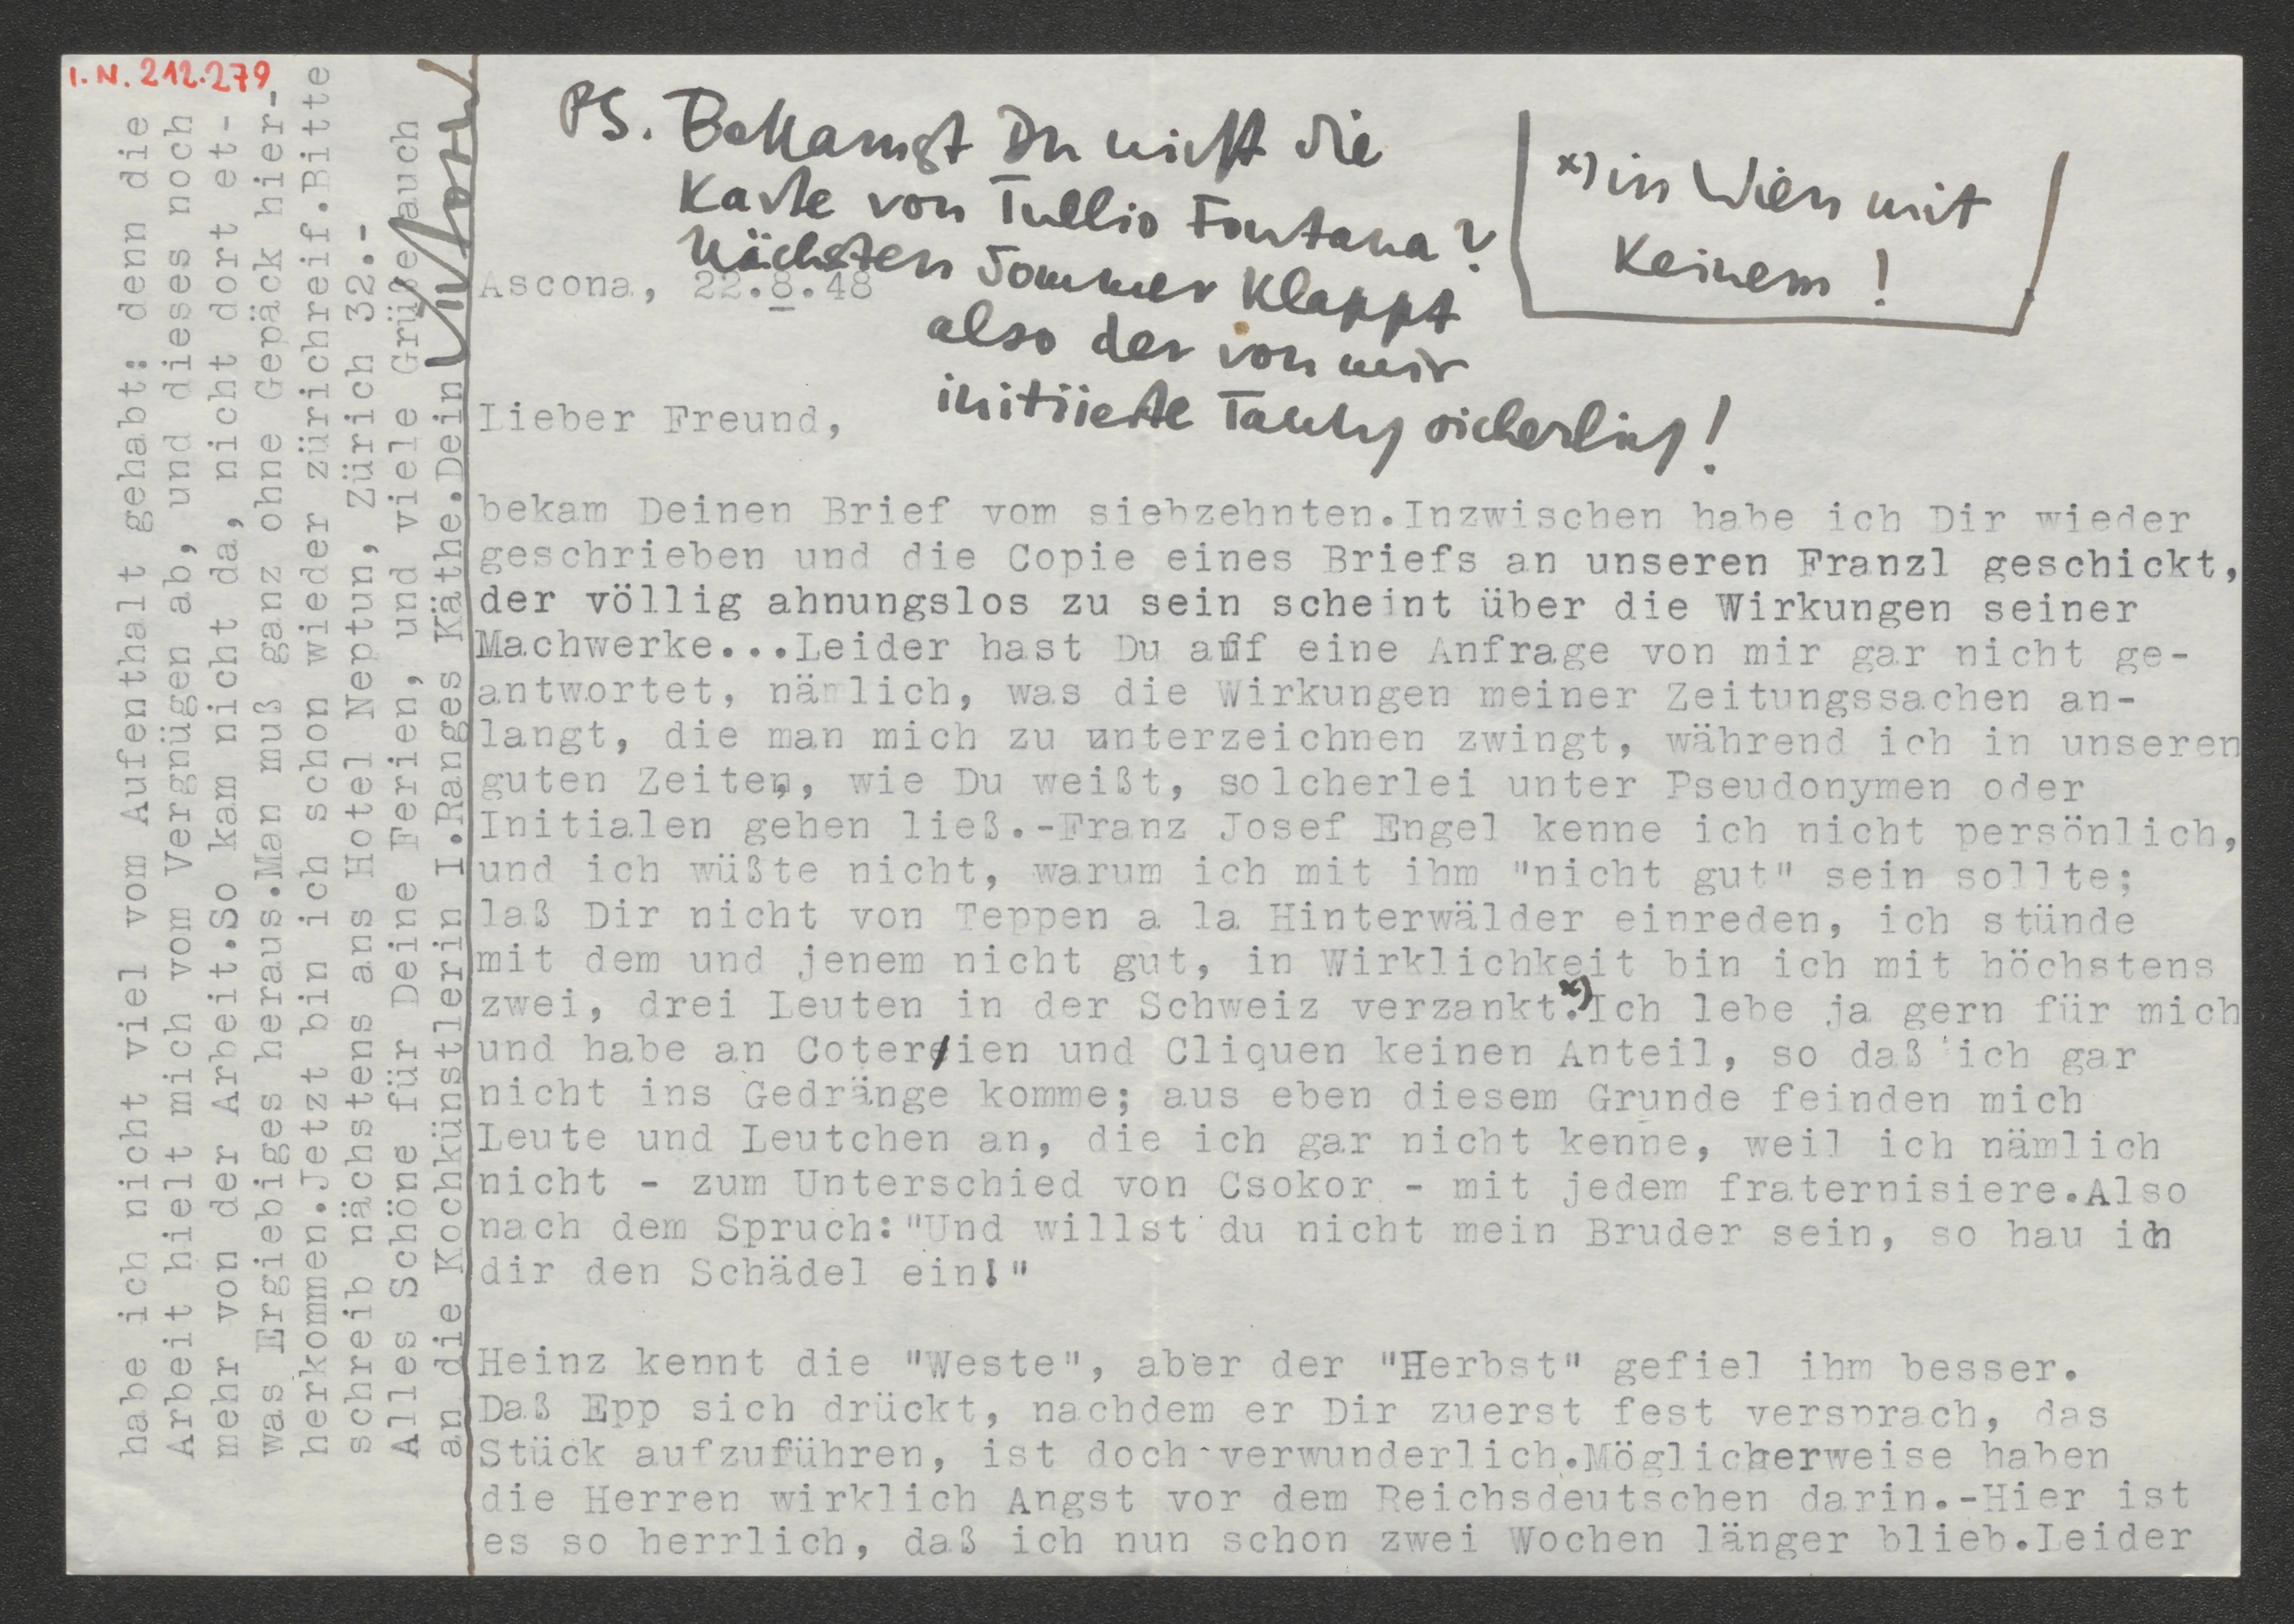 I.N. 212.279
PS. Bekamst Du nicht die
Karte von Tullio Fontana?
Nächsten Sommer klappt
also der von mir
initiierte Tausch sicherlich!
x) in Wien mit
keinem!
Ascona, 22.8.48
Lieber Freund,
bekam Deinen Brief vom siebzehnten.Inzwischen habe ich Dir wieder
geschrieben und die Copie eines Briefs an unseren Franzl geschickt,
der völlig ahnungslos zu sein scheint über die Wirkungen seiner
Machwerke...Leider hast Du auf eine Anfrage von mir gar nicht ge-
antwortet, nämlich, was die Wirkungen meiner Zeitungssachen an-
langt, die man mich zu unterzeichnen zwingt, während ich in unseren
guten Zeiten, wie Du weißt, solcherlei unter Pseudonymen oder
Initialen gehen ließ.-Franz Josef Engel kenne ich nicht persönlich,
und ich wüßte nicht, warum ich mit ihm "nicht gut" sein sollte;
laß Dir nicht von Teppen a la Hinterwälder einreden, ich stünde
mit dem und jenem nicht gut, in Wirklichkeit bin ich mit höchstens
zwei, drei Leuten in der Schweiz verzankt.x)Ich lebe ja gern für mich
und habe an Coterien und Cliquen keinen Anteil, so daß ich gar
nicht ins Gedränge komme; aus eben diesem Grunde feinden mich
Leute und Leutchen an, die ich gar nicht kenne, weil ich nämlich
nicht - zum Unterschied von Csokor - mit jedem fraternisiere.Also
nach dem Spruch:"Und willst du nicht mein Bruder sein, so hau ich
dir den Schädel ein!"
Heinz kennt die "Weste", aber der "Herbst" gefiel ihm besser.
Daß Epp sich drückt, nachdem er Dir zuerst fest versprach, das
Stück aufzuführen, ist doch verwunderlich.Möglicherweise haben
die Herren wirklich Angst vor dem Reichsdeutschen darin.-Hier ist
es so herrlich, daß ich nun schon zwei Wochen länger blieb.Leider
habe ich nicht viel vom Aufenthalt gehabt: denn die
Arbeit hielt mich vom Vergnügen ab, und dieses noch
mehr von der Arbeit.So kam nicht da, nicht dort et-
was Ergiebiges heraus.Man muß ganz ohne Gepäck hier-
herkommen.Jetzt bin ich schon wieder zürichreif.Bitte
schreib nächstens ans Hotel Neptun, Zürich 32.-
Alles Schöne für Deine Ferien, und viele Grüße auch
an die Kochkünstlerin I.Ranges Käthe.Dein